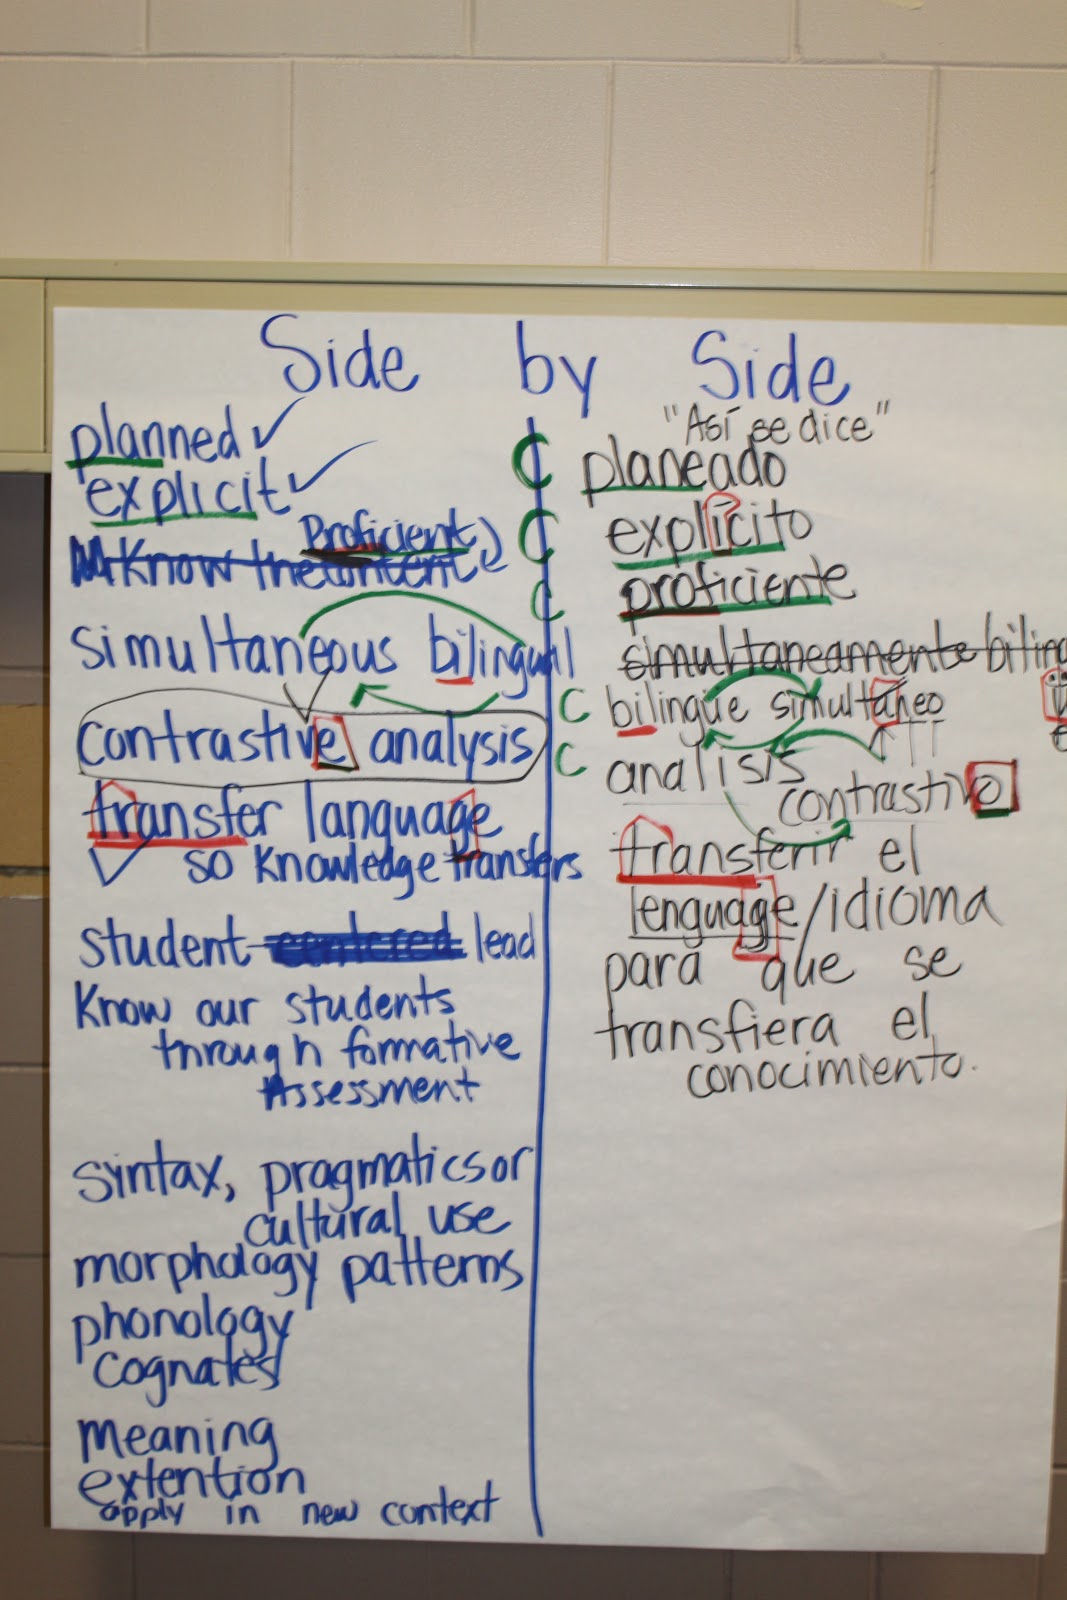 Side by Side
planned ✓
explicit ✓
Proficient
Know the content
simultaneous bilingual
contrastive analysis
transfer language
so Knowledge transfers
student centered lead
Know our students
through formative
Assessment
syntax, pragmatics or
cultural use
morphology patterns
phonology
cognates
meaning
extention
apply in new context
"Así se dice"
C planeado
C explícito
C proficiente
simultaneamente
C bilingüe simultáneo
C analisis
contrastivo
transferir el
lenguage/idioma
para que se
transfiera el
conocimiento.